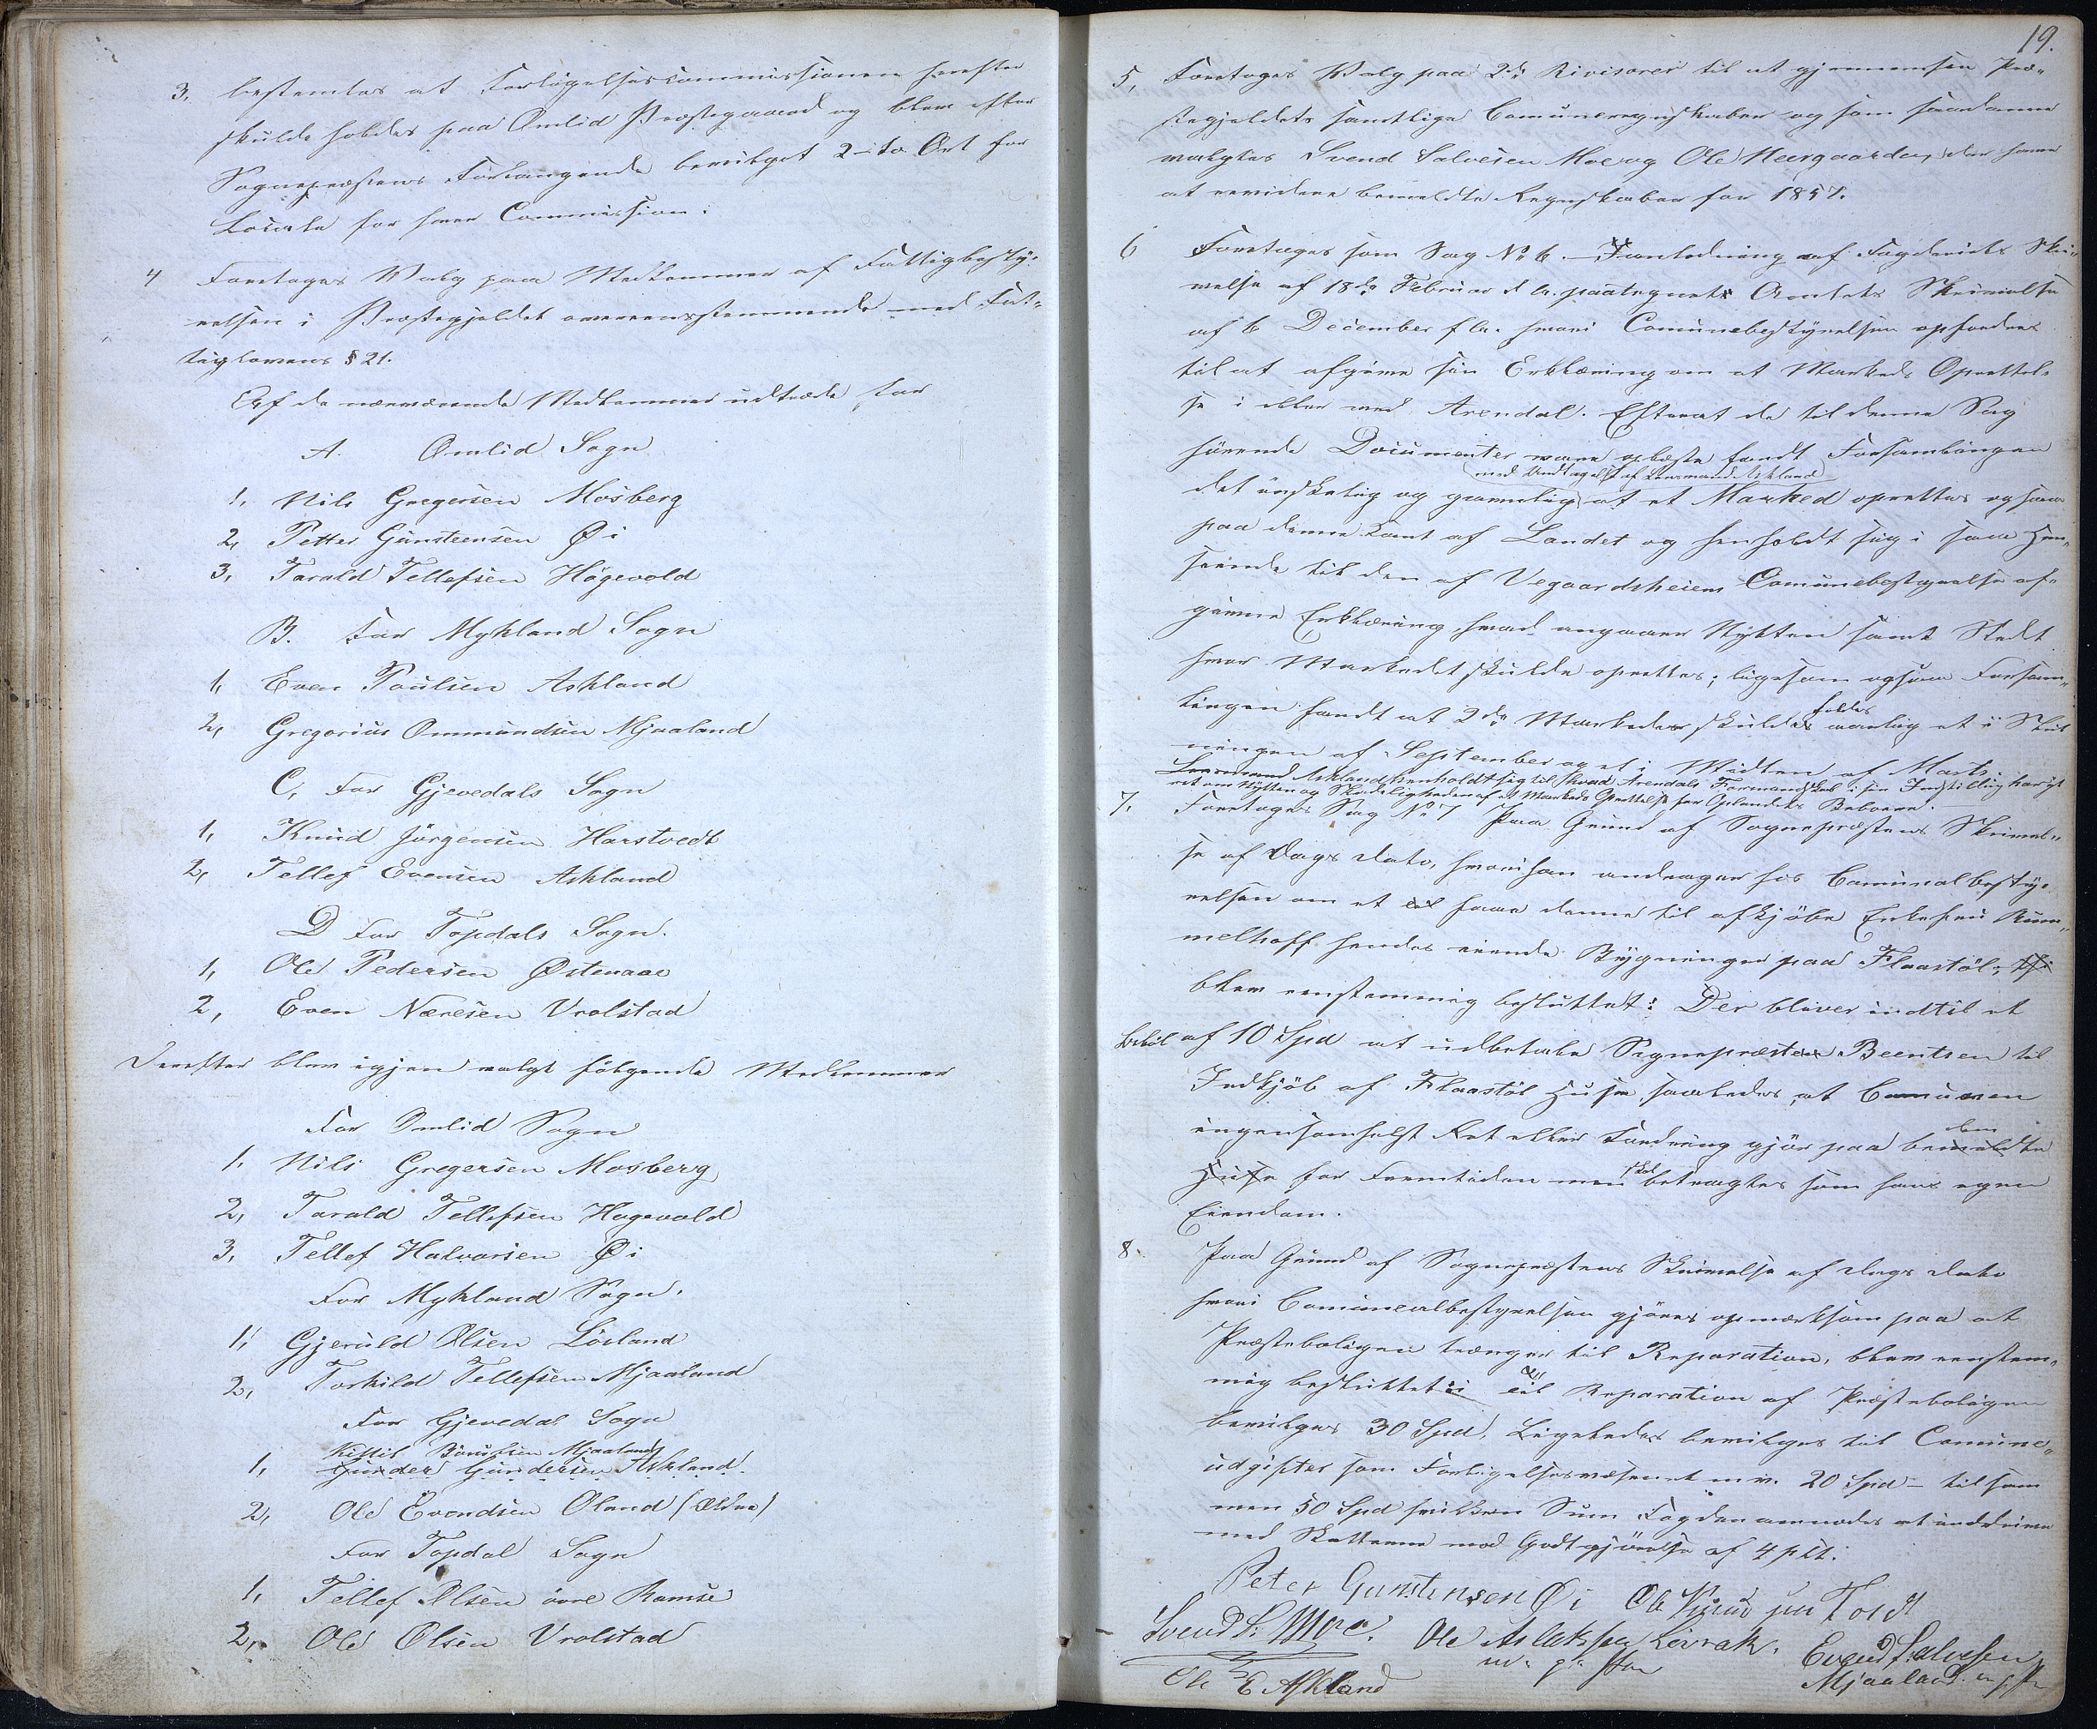 3, bestemtes at Forligelsescommissionen herefter
skulde holdes paa Omlid Præstegaard og blev efter
Sognepræstens Forlangende bevilget 2 - to Ort for
Locale for hver Commission.
4 Foretoges Valg paa Medlemmer af Fattigbesty-
relsen i Præstegjeldet overensstemmende med Fat-
tiglovens § 21.
Af de nærværende Medlemmer udtræde for
A. Omlid Sogn
1, Nils Gregersen Mosberg
2, Petter Gunsteensen Øi
3, Tarald Tellefsen Högevold
B. For Mykland Sogn
1, Even Poulsen Askland
2, Gregorius Ommundsen Mjaaland
C, For Gjevedals Sogn
1, Knud Jörgensen Harstvedt
2, Tellef Evensen Askland
D For Topdals Sogn.
1, Ole Pedersen Østenaae
2, Even Næresen Vrolstad
Derefter blev igjen valgt følgende Medlemmer
For Omlid Sogn
1. Nils Gregersen Mosberg
2, Tarald Tellefsen Hogevold
3, Tellef Halvorsen Øi
For Mykland Sogn.
1, Gjeruld Olsen Lösland
2, Torkild Tellefsen Mjaaland
For Gjevedal Sogn
Kittil Mjaaland
1, Gunder Gundersen Askland.
2, Ole Evendsen Oland (Ældre)
For Topdal Sogn
1, Tellef Olsen övre Ramse
2, Ole Olsen Vrolstad
19.
5, Foretoges Valg paa 2de Revisorer til at gjennemsee Præ-
stegjeldets samtlige Comuneregnskaber og som saadanne
valgtes Svend Salvesen Moe og Ole Heergaarden, der have
at revidere bemeldte Regnskaber for 1857.
6 Foretoges som Sag No 6. - I Anledning af Fogderiets Skri-
velse af 18de Februar d. A. paategnet Amtets Skrivelse
af 6 December f. A. hvori Comunebestyrelsen opfordres
til at afgive sin Erklæring om et Markeds Oprettel-
se i eller ved Arendal. Efterat de til denne Sag
hörende Documenter vare oplæste fandt Forsamlingen
med Undtagelse af Lensmand Askland
det önskelig og gavnlig at et Marked oprettes ogsaa
paa denne Kant af Landet og henholdt sig i saa Hen-
seende til den af Vegaardsheiens Comunebestyrelse af-
givne Erklæring, hvad angaaer Nytten samt Stedet
hvor Markedet skulde oprettes; ligesom ogsaa Forsam-
lingen fandt at 2de Markeder skulde holdes aarlig et i Slut
ningen af September og et i Midten af Marts.
Lensmand Askland henholdt sig til hvad Arendals Formandskab i sin Indstilling har ytt
ret om Nytten og Skadeligheden af et Markeds Oprettelse for Oplandets Beboere.
7. Foretoges Sag No 7 Paa Grund af Sognepræstens Skrivel-
se af Dags Dato, hvori han andrager hos Comunalbesty-
relsen om at faae denne til afkjöbe Enkefru Rum-
melhoff hendes eiende Bygninger paa Flaastöl,
blev eenstemmig besluttet: Der bliver indtil et
Belöb af 10 Spd at udbetale Sognepræsten Beentsen til
Indkjöb af Flaastöl Huse, saaledes, at Comunen
ingensomhelst Ret eller Fordring gjör paa dem bemeldte
Huse for Fremtiden men skal betragtes som hans egen
Eiendom.
8. Paa Grund af Sognepræstens Skrivelse af Dags Dato
hvori Comunealbestyrelsen gjöres opmærksom paa at
Præsteboligen trænger til Reparation, blev eenstem-
mig besluttet: Til Reparation af Præsteboligen
bevilges 30 Spd, Ligeledes bevilges til Comune-
udgifter som Forligelsesvæsenet m. v. 20 Spd - tilsam
men 50 Spd hvilken Sum Fogden anmodes at inddrive
med Skatterne mod Godtgjörelse af 4 pCt.
Peter Gunstensen Øi
Svend S. Moe. Ole Aslaksen Levrak. Evend Salvesen
m. p. Pen Mjaaland m. p. Pen
Ole E Askland